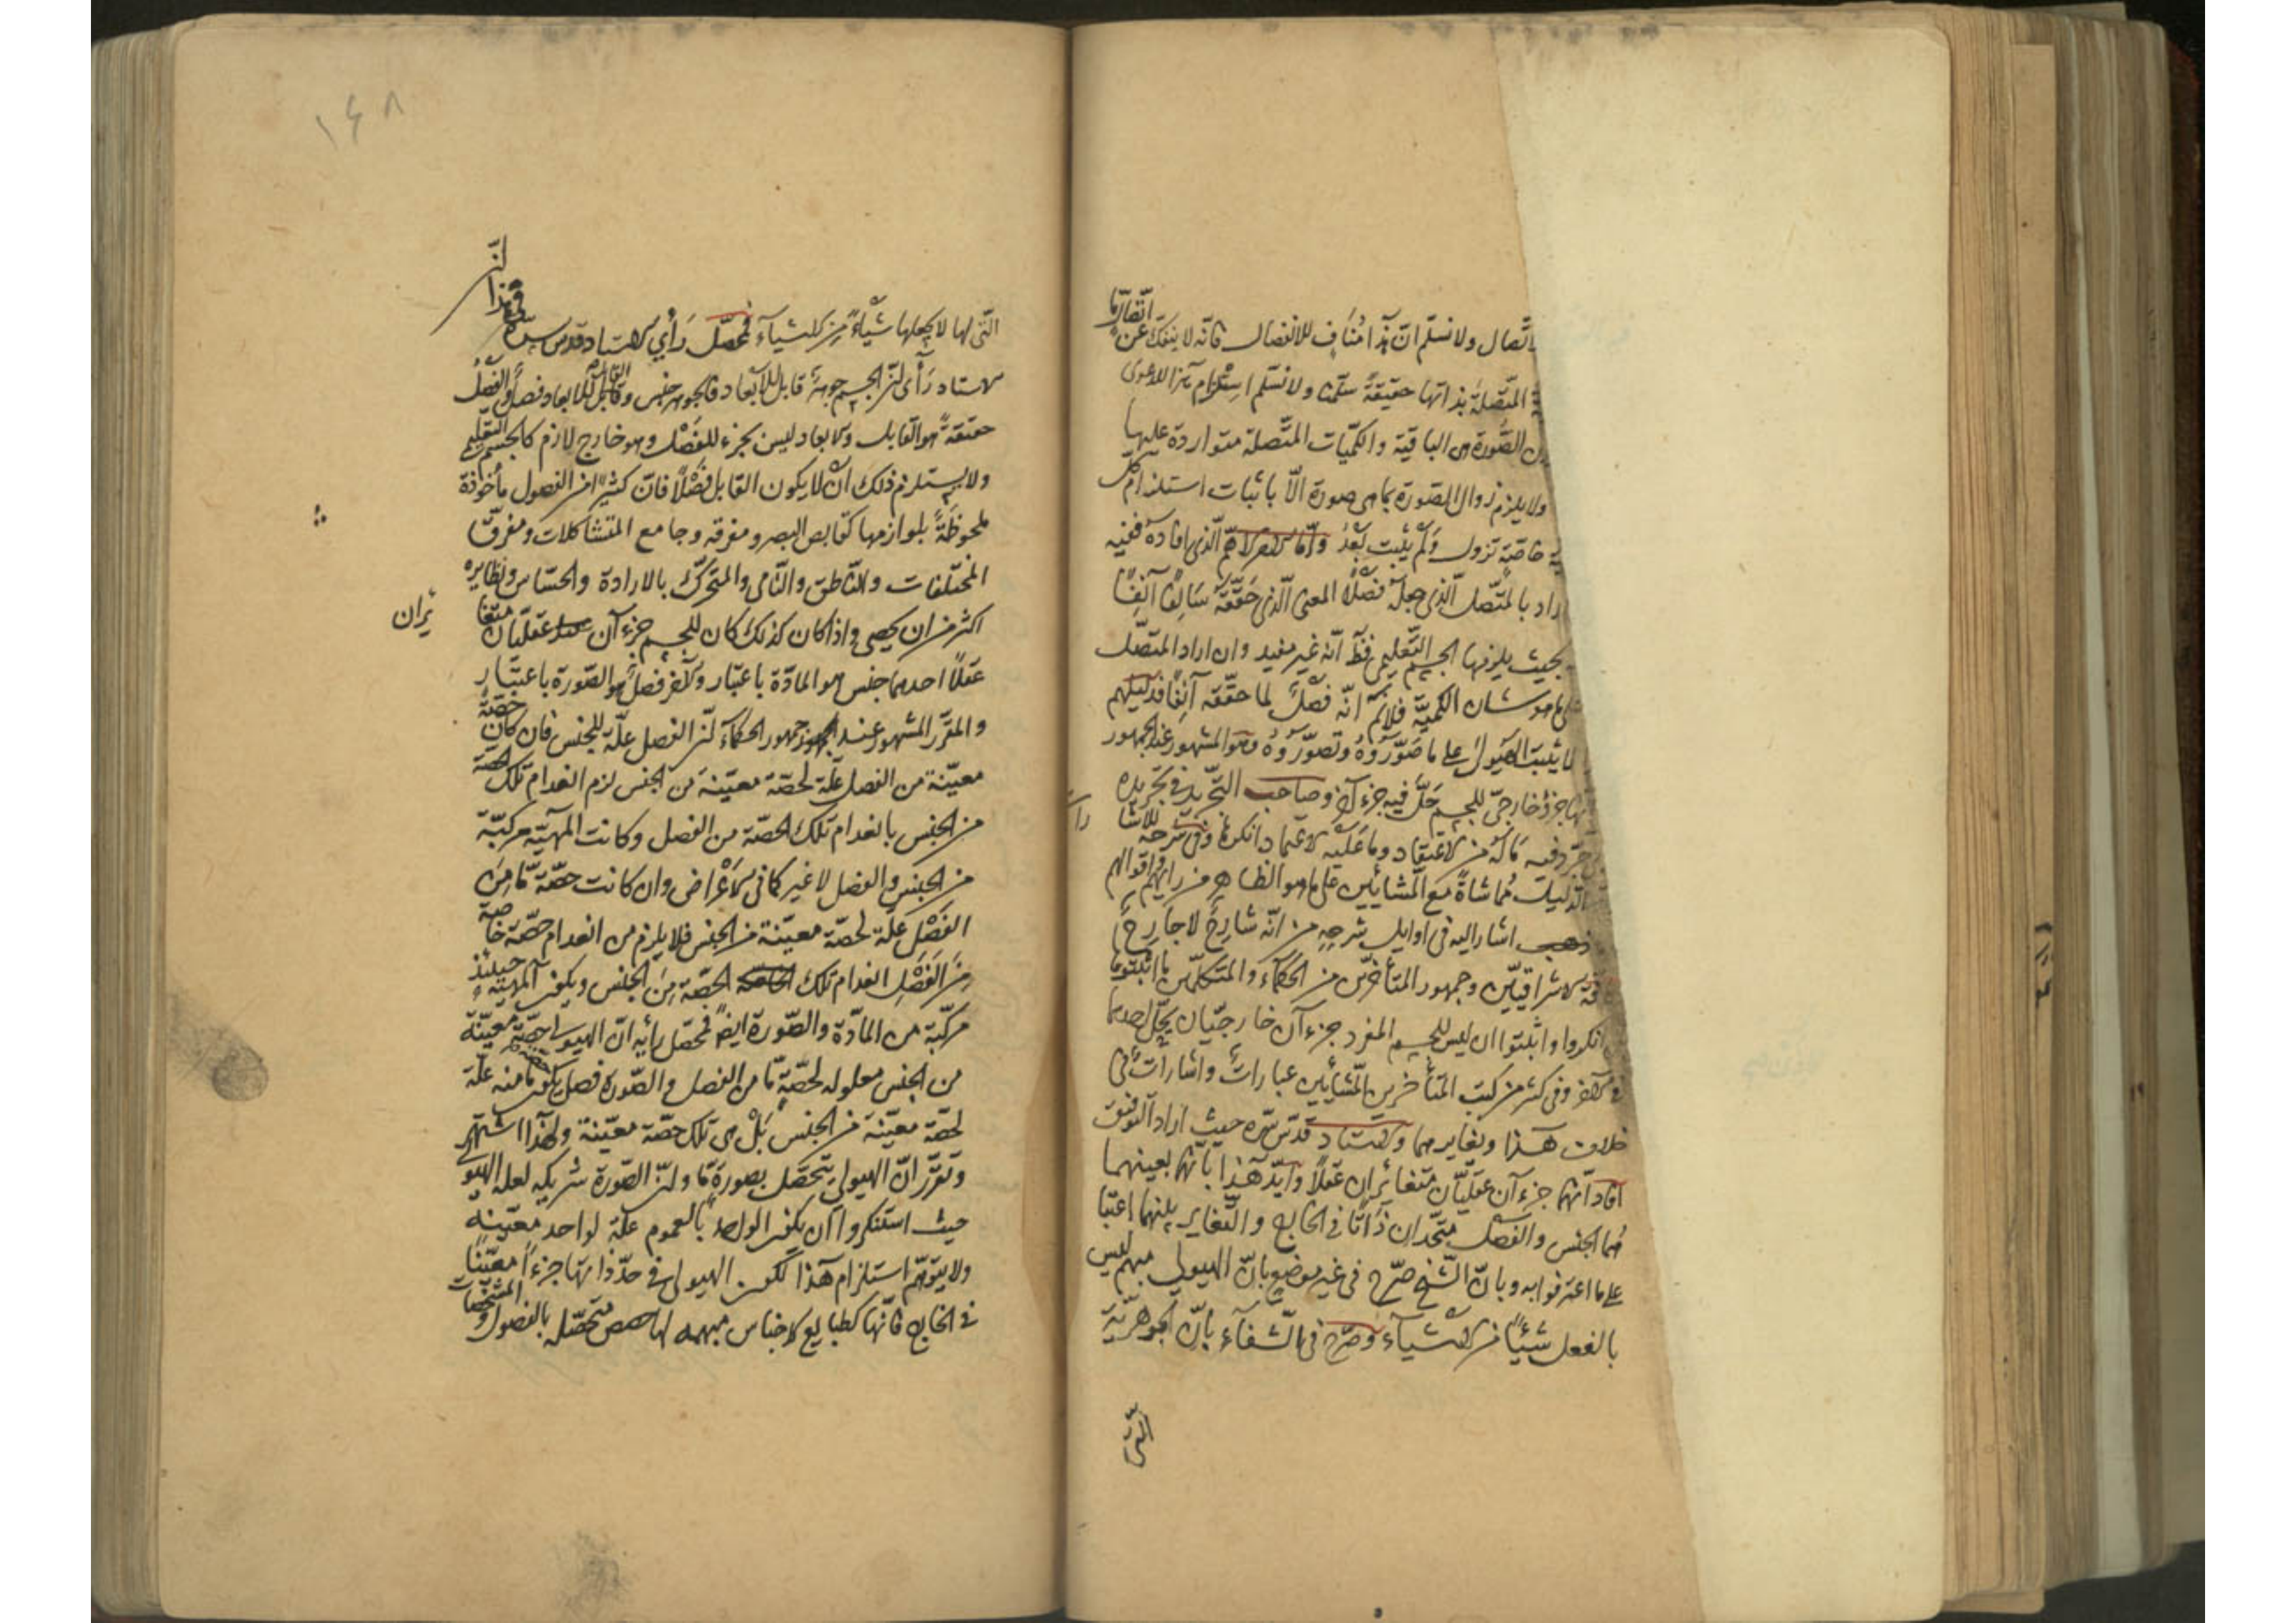 اتصال ولا نسلّم انّ هذا مناف للانفصال فانّه لا ينفكّ عن اتّصال ما
المتّصلة بذاتها حقيقةً سلّمنا ولا نسلّم استلزام هذا للدعوى
الصّورة هى الباقية والكمّيات المتّصلة متواردة عليها
ولا يلزم زوال الصّورة بما هى صورة الّا باثبات استلزام كل
خاصّة تزول ولم يثبت بعدُ وامّا الذى افاده ففيه
اراد بالمتّصل الّذى جعله فصلًا المعنى الّذى حقّقه سالفًا آنفًا
بحيث يلزمها الجسم التّعليمى فظ انّه غير مفيد وان اراد المتّصل
ما هو شان الكمّيّة فلانم انّه فصل لما حقّقه آنفًا فدليلهم
لما يثبت الهيولى على ما صوّروه وتصوّروه وهو المشهور عند الجمهور
انها جزؤ خارجىّ للجسم حلّ فيه جزء آخر وصاحب التّجريد فى تجريده
جرّد فيه ماله من الاعتقاد وما عليه الاعتماد انكرها وفى شرحه للاشا را
الدليل مُماشاةً مع المشائين على ما هو الظاهر من رايهم واقوالهم
ذهب اشار اليه فى اوايل شرحه من انّه شارح لا جارح
الاشراقيّين وجمهور المتأخرين من الحكمآء والمتكلّمين ما اثبتوها
انكروا واثبتوا ان ليس للجسم المفرد جزءآن خارجيّان يحلّ احدهما
فى الآخر وفى كثير من كتب المتأخرين المشّائين عبارات واشارات فى
خلاف هذا وتغايرهما والاستاد قدّس سرّه حيث اراد التوفيق
افاد انّهما جزءآن عقليّان متغائران عقلًا وايّد هذا بانّهما بعينهما
هُما الجنس والفصل متّحدان ذاتًا فى الخارج والتّغاير بينهما اعتبا
على ما اعترفوا به وبانّ الشّيخ صرّح فى غير موضعٍ بانّ الهيولى مبهم ليس
بالفعل شيئًا من الاشيآء وصرّح فى الشّفآء بأنّ الجوهريّة
الّتى
۱۶۸
الّتى لها لا يجعلها شيئًا من الاشيآء فمحصّل رأي الاستاد قدّس سرّه فى هذا انّ
الاستاد رأى انّ الجسم جوهرٌ قابل للابعاد فالجوهر جنس والقابل للابعاد فصل والفصل
حقيقةً هو القابل والابعاد ليس بجزء للفصل وهو خارج لازم كالجسم التعليمى
ولا يستلزم ذلك ان لا يكون القابل فصلًا فانّ كثيرًا من الفصول مأخوذة
ملحوظةً بلوازمها كقابض البصر ومفرقه وجامع المتشاكلات ومفرّق
المختلفات والنّاطق والنّامى والمتحرّك بالارادة والحسّاس ونظايره
اكثر من ان يحصى واذا كان كذلك كان للجسم جزءآن عقليّان متغا يران
عقلًا احدهما جنس هو المادّة باعتبار والآخر فصل هو الصّورة باعتبار
والمقرّر المشهور عند جمهور الحكمآء انّ الفصل علّة للجنس فان كان حصّة
معيّنة من الفصل علّة لحصّة معيّنة من الجنس لزم انعدام تلك الحصّة
من الجنس بانعدام تلك الحصّة من الفصل وكانت المهيّة مركبّة
من الجنس والفصل لا غير كما فى الاعراض وان كانت حصّة مّا من
الفصل علّة لحصّة معيّنة من الجنس فلا يلزم من انعدام حصّة خاصّة
من الفصل انعدام تلك الحصّة من الجنس ويكون المهيّة حينئذ
مركّبة من المادّة والصّورة ايضً فمحصّل رأيه انّ الهيولى حصّة معيّنة
من الجنس معلوله لحصّةٍ مّا من الفصل والصّورة فصل يكون حصّة مّا منه علّة
لحصّة معيّنة من الجنس بل هى تلك حصّة معيّنة ولهذا اشتهر
وتقرّر انّ الهيولى يتحصّل بصورة مّا وانّ الصّورة شريكه لعله الهيولى
حيث استنكروا ان يكون الواحد بالعموم علّة لواحد معيّنه
ولا يتوهّم استلزام هذا لكون الهيولى فى حدّ ذاتها جزءًا معيّنًا
فى الخارج فانّها كطبايع الاجناس مبهمه لها حصص متحصّله بالفصول والمشخّصات